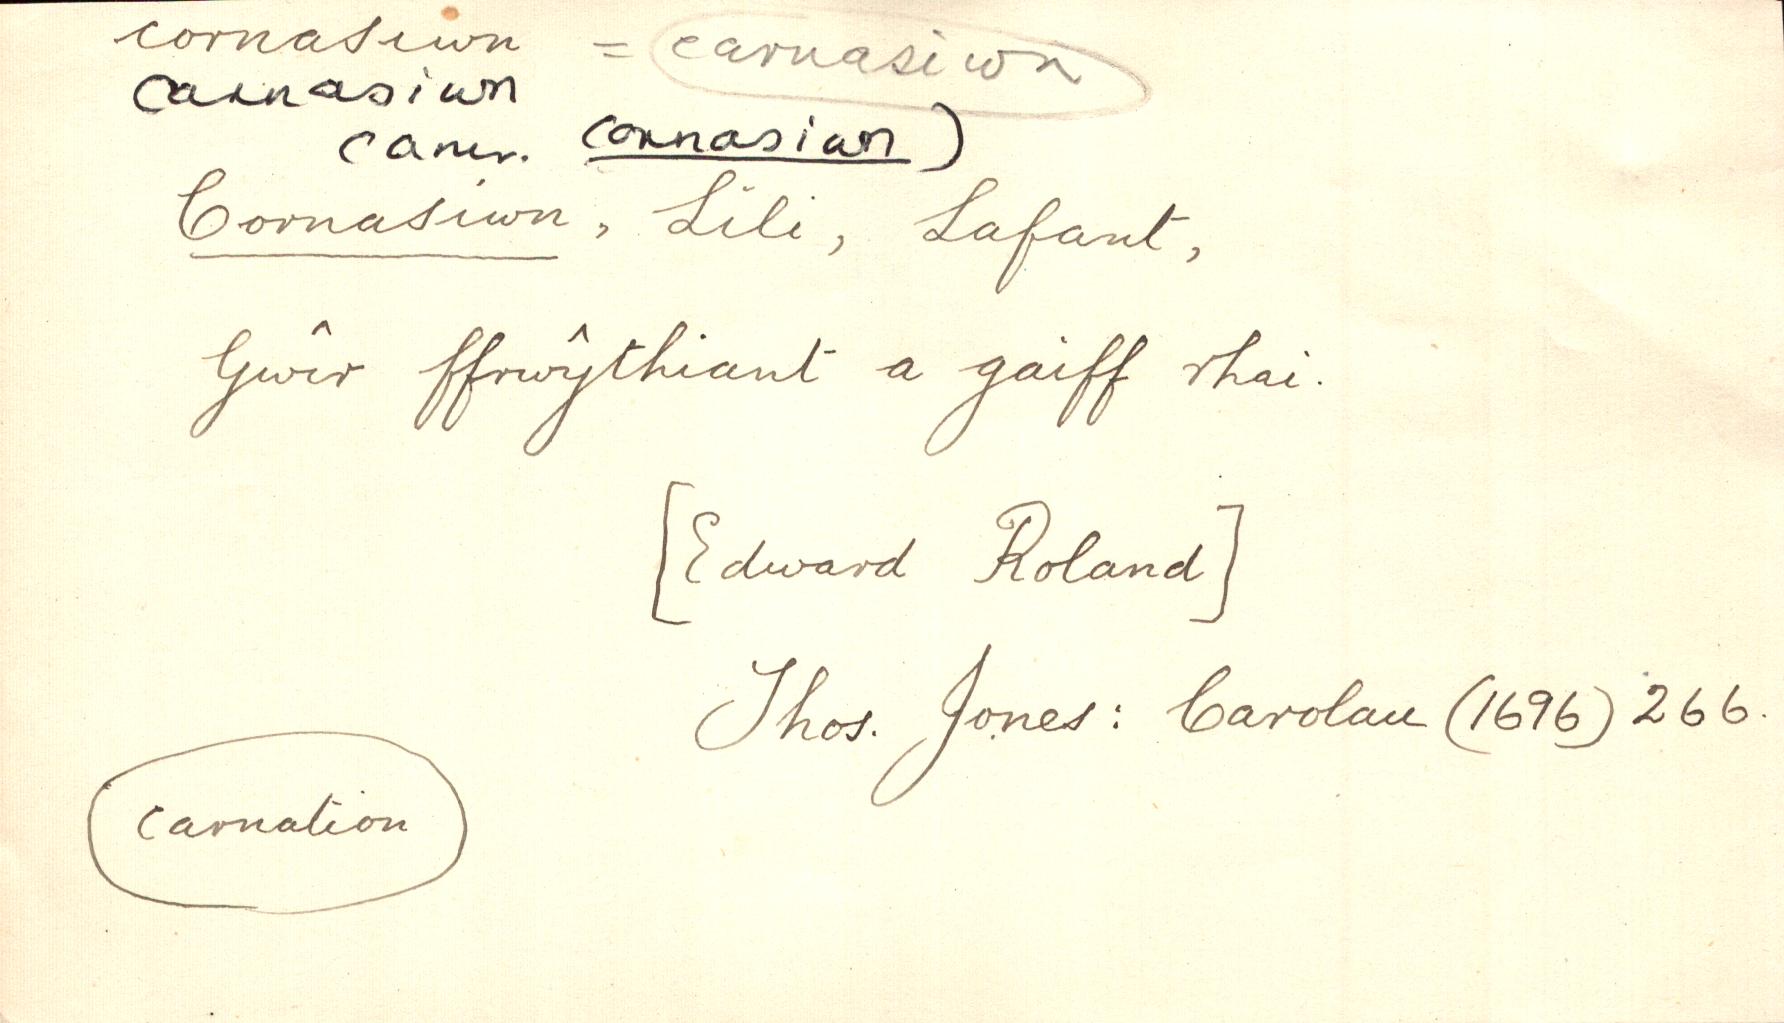 cornasiwn = carnasiwn
carnasiwn
camr. cornasiwn)
Cornasiwn, Lili, Lafant,
Gwîr ffrwŷthiant a gaiff rhai.
[Edward Roland]
Thos. Jones: Carolau (1696) 266.
carnation